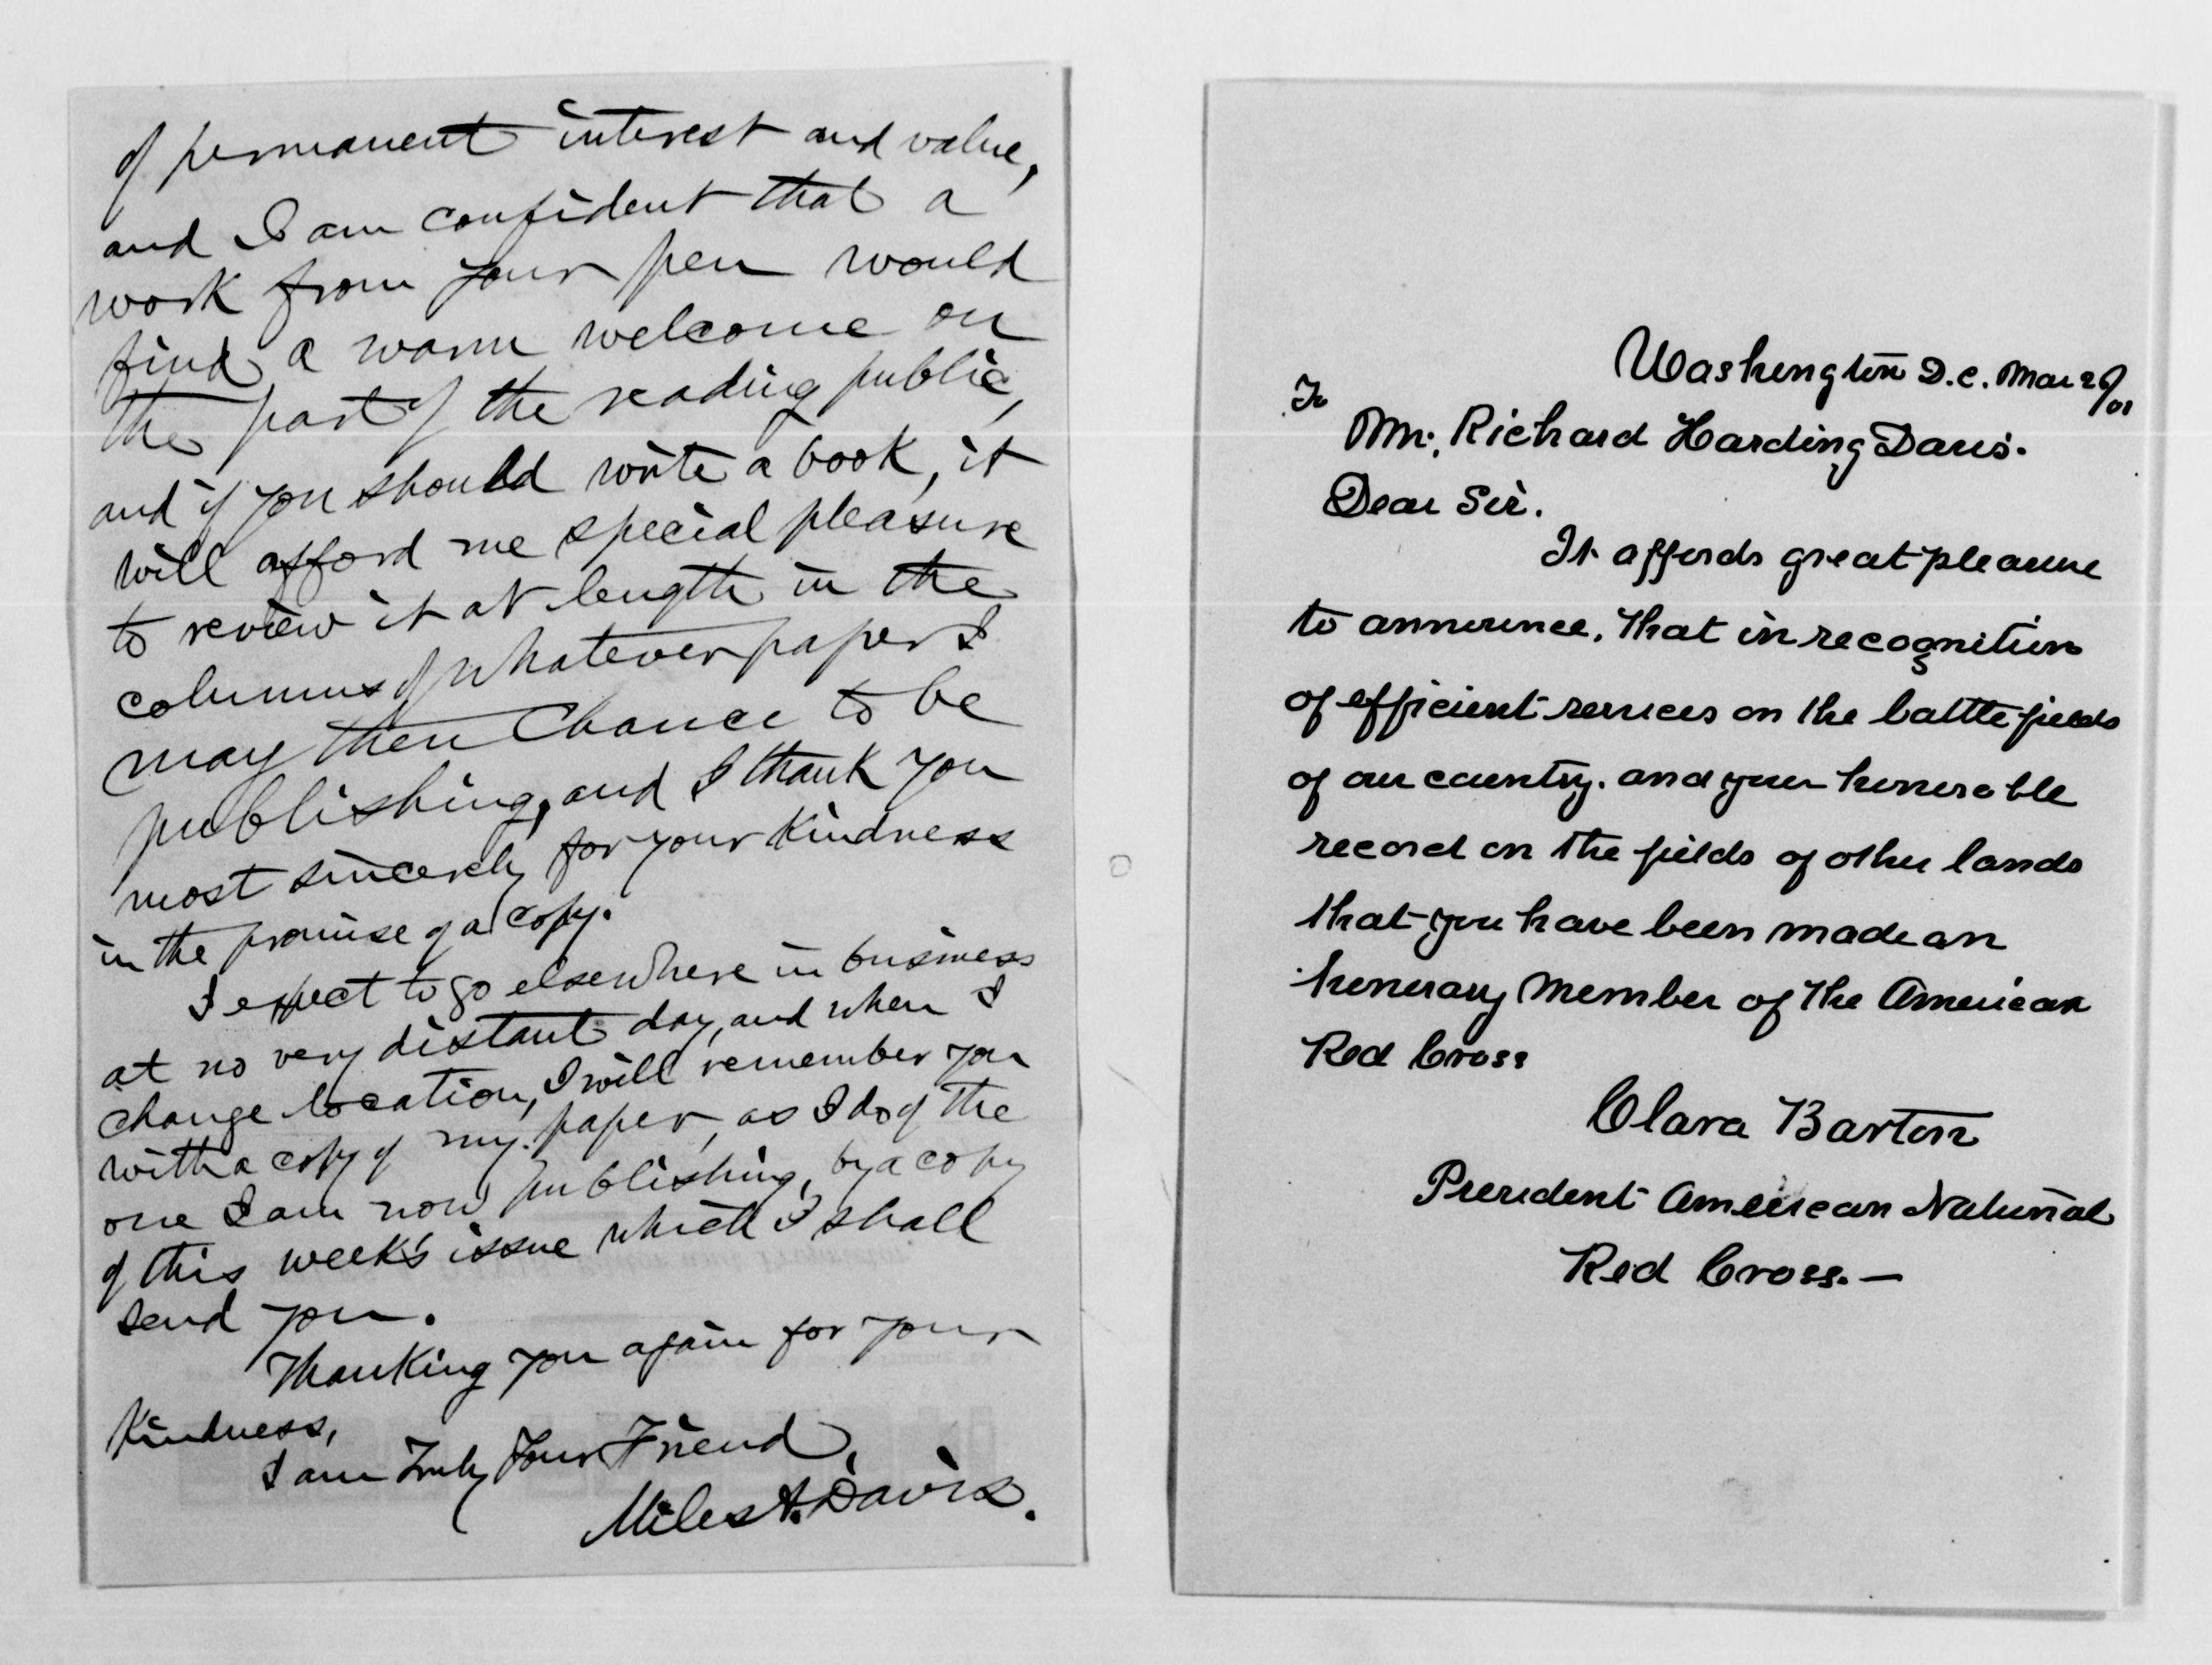 of permanent interest and value,
and I am confident that a
work from your pen would
find a warm welcome on
the part of the reading public,
and if you should write a book, it
will afford me special pleasure
to review it at length in the
columns of whatever paper I
may then chance to be
publishing, and I thank you
most sincerely for your kindness
in the promise of a copy.
I expect to go elsewhere in business
at no very distant day, and when I
change location, I will remember you
with a copy of my paper, as I do of the
one I am now publishing, by a copy
of this week's issue which I shall
send you.
Thanking you again for your
kindness,
I am Truly Your Friend,
Miles A. Davis.
Washington D.C. Mar
To
Mr. Richard Harding Davis.
Dear Sir.
It affords great pleasure
to announce, that in recognition
of efficient services on the battle fields
of our country. and your honorable
record on the fields of other lands
that you have been made an
honorary Member of the American
Red Cross
Clara Barton
President American National
Red Cross.—